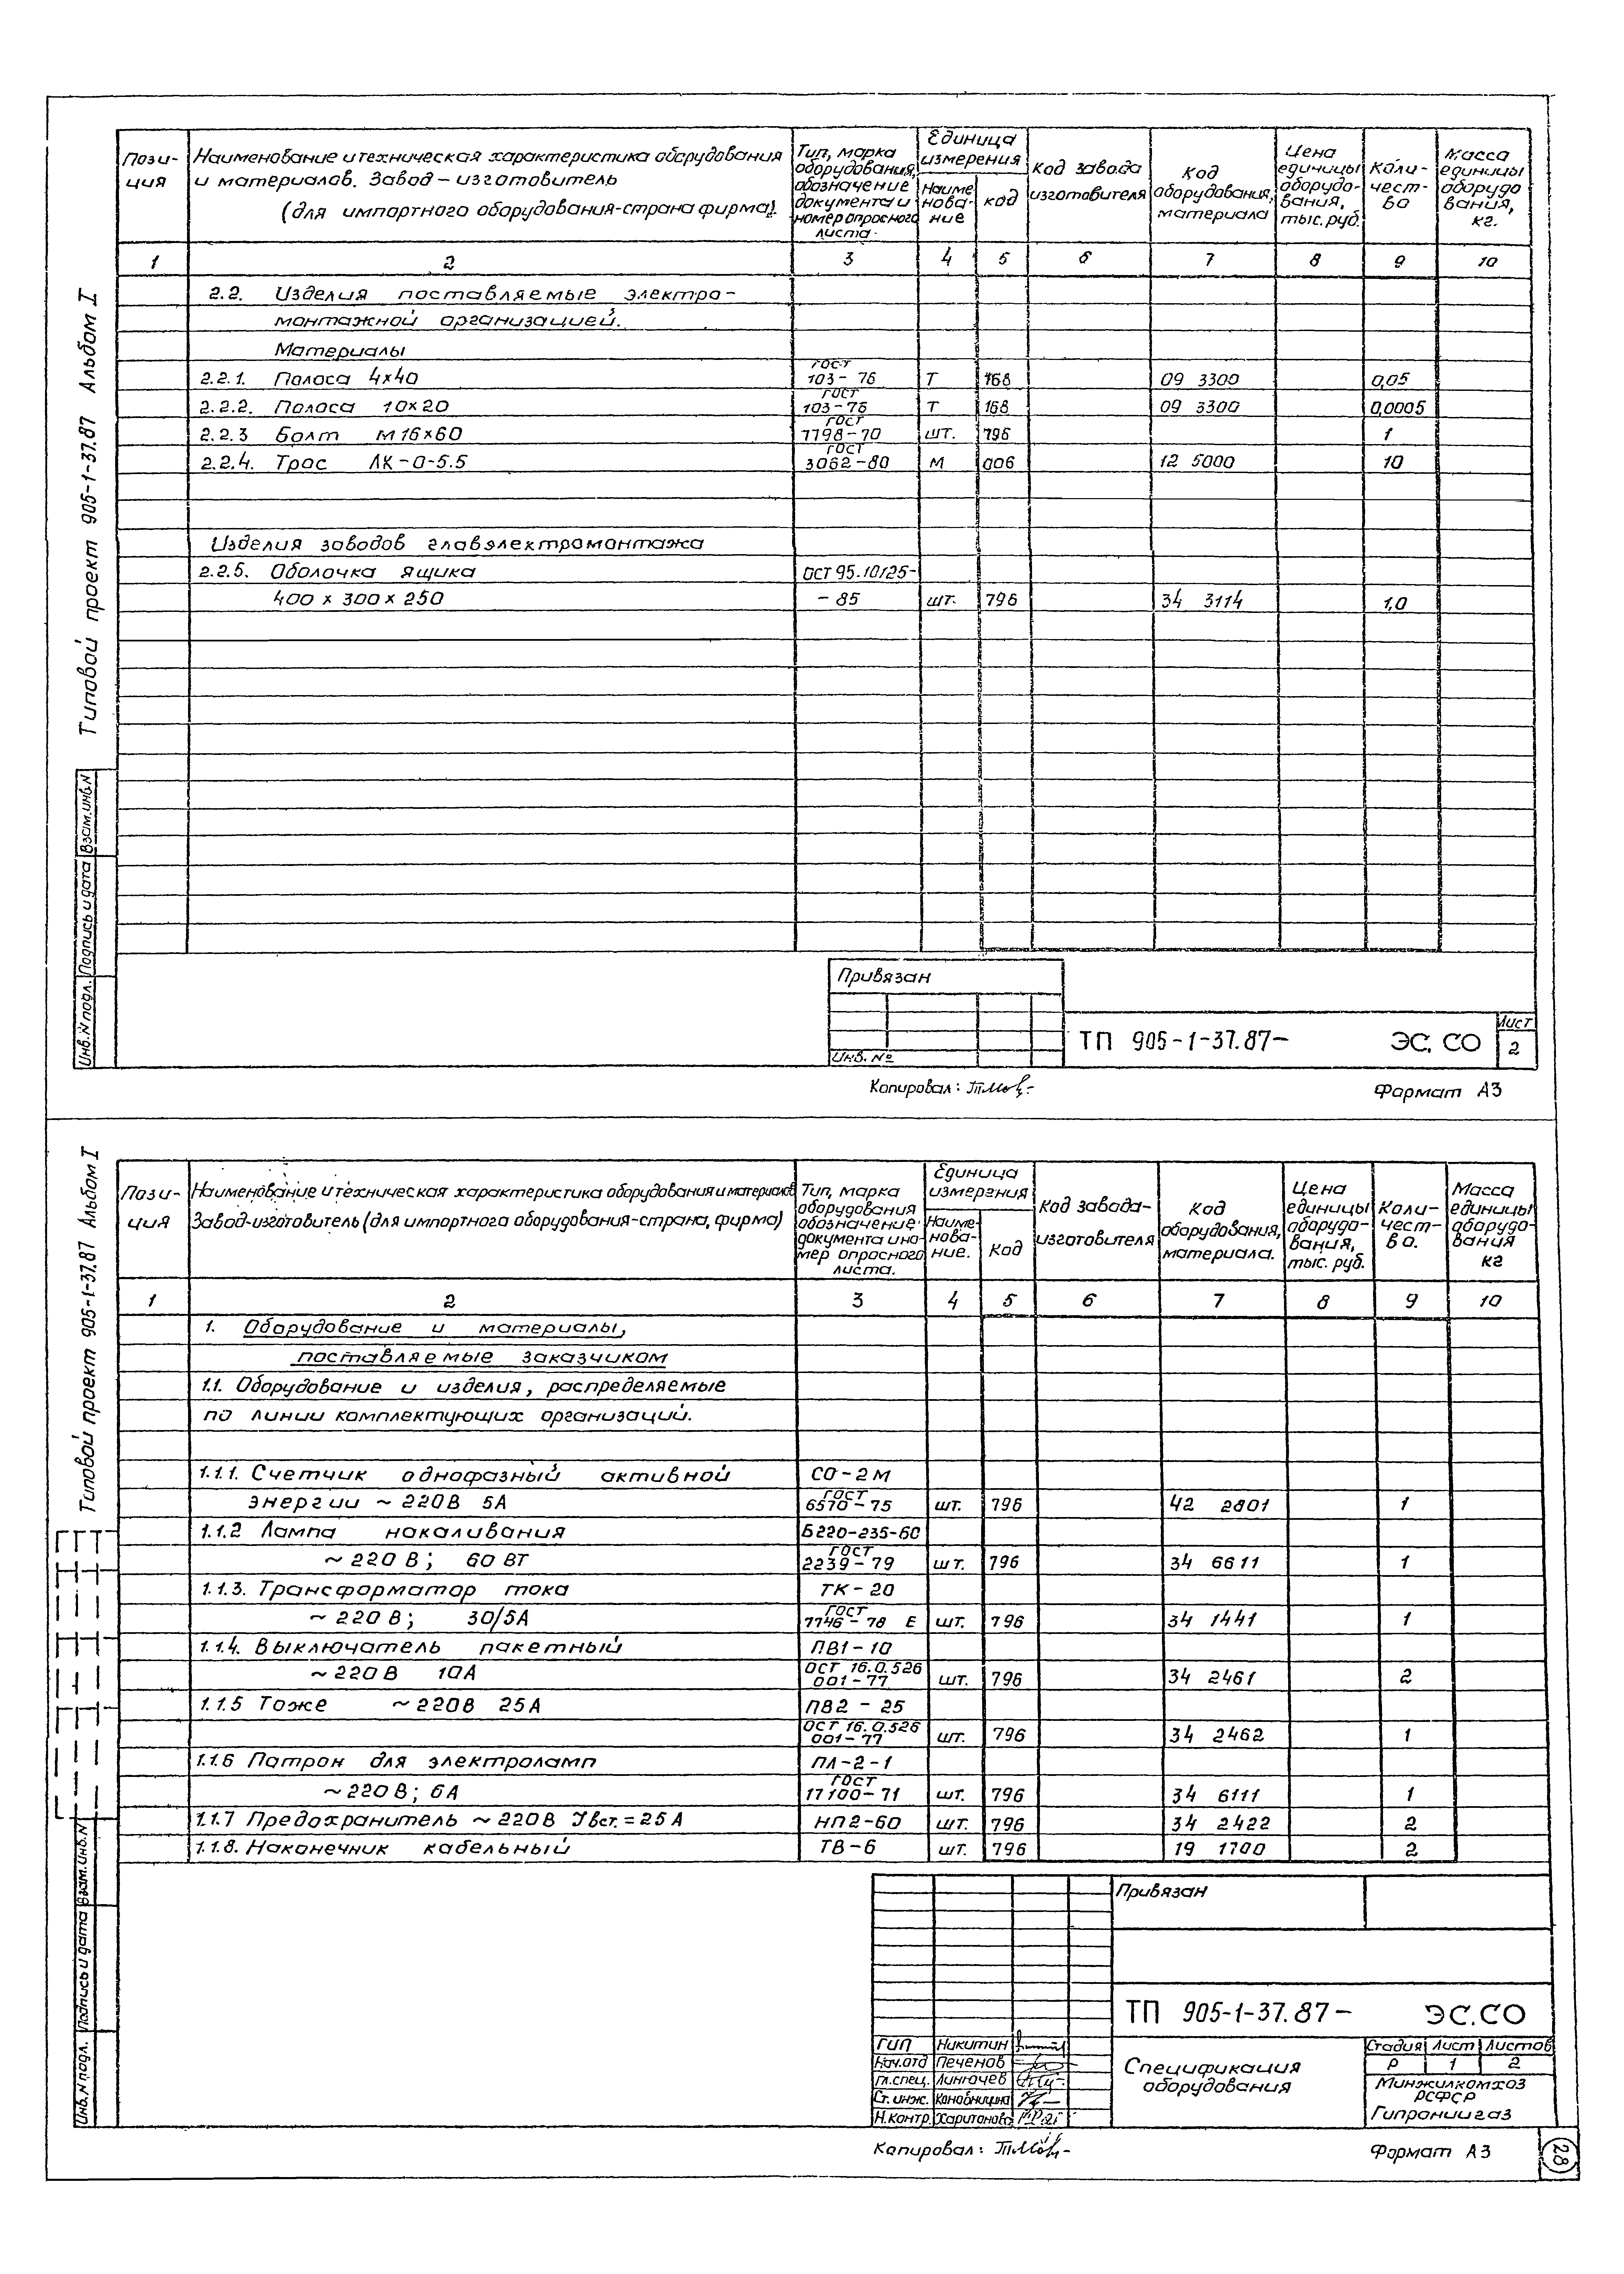 Типовой проект 905-1-37.87 Альбом I
Пози-
ция
Наименование и техническая характеристика оборудования
и материалов. Завод-изготовитель
(для импортного оборудования-страна фирма).
Тип, марка
оборудования,
обозначение
документа и
номер опросного
листа.
Единица
измерения
Наиме
нова-
ние
код
Код завода
изготовителя
Код
оборудования,
материала
Цена
единицы
оборудо-
вания,
тыс. руб.
Коли-
чест-
во
Масса
единицы
оборудо
вания,
кг.
1 2 3 4 5 6 7 8 9 10
2.2. Изделия поставляемые электро-
монтажной организацией.
Материалы
2.2.1. Полоса 4х40 ГОСТ 103-76 Т 168 09 3300 0,05
2.2.2. Полоса 10х20 ГОСТ 103-76 Т 168 09 3300 0,0005
2.2.3 Болт М16х60 ГОСТ 7798-70 шт. 796 1
2.2.4. Трос ЛК-0-5.5 ГОСТ 3062-80 М 006 12 5000 10
Изделия заводов главэлектромонтажа
2.2.5. Оболочка ящика ОСТ 95.10125-
400 х 300 х 250 - 85 шт. 796 34 3114 1,0
Инв. N подл. Подпись и дата Взам. инв. N
Привязан
Инв. №
ТП 905-1-37.87- ЭС. СО
Лист
2
Копировал:
Формат А3
Типовой проект 905-1-37.87 Альбом I
Пози-
ция
Наименование и техническая характеристика оборудования и материалов
Завод-изготовитель (для импортного оборудования-страна, фирма)
Тип, марка
оборудования
обозначение
документа и но-
мер опросного
листа.
Единица
измерения
Наиме-
нова-
ние.
Код
Код завода-
изготовителя
Код
оборудования,
материала.
Цена
единицы
оборудо-
вания,
тыс. руб.
Коли-
чест-
во.
Масса
единицы
оборудо-
вания
кг
1 2 3 4 5 6 7 8 9 10
1. Оборудование и материалы,
поставляемые заказчиком
1.1. Оборудование и изделия, распределяемые
по линии комплектующих организаций.
1.1.1. Счетчик однофазный активной СО-2М
энергии ~ 220В 5А ГОСТ 6570-75 шт. 796 42 2801 1
1.1.2 Лампа накаливания Б220-235-60
~ 220 В; 60 ВТ ГОСТ 2239-79 шт. 796 34 6611 1
1.1.3. Трансформатор тока ТК-20
~ 220 В; 30/5А ГОСТ 7746-78 Е шт. 796 34 1441 1
1.1.4. Выключатель пакетный ПВ1-10
~ 220 В 10А ОСТ 16.0.526 001-77 шт. 796 34 2461 2
1.1.5 Тоже ~ 220В 25А ПВ2 - 25
ОСТ 16.0.526 001-77 шт. 796 34 2462 1
1.1.6 Патрон для электроламп ПЛ-2-1
~ 220 В; 6А ГОСТ 17100-71 шт. 796 34 6111 1
1.1.7 Предохранитель ~ 220В Iвст. = 25 А НП2-60 шт. 796 34 2422 2
1.1.8. Наконечник кабельный ТВ-6 шт. 796 19 1700 2
Инв. N подл. Подпись и дата Взам. инв. N
Привязан
ТП 905-1-37.87- ЭС.СО
ГИП Никитин
Нач.отд Печенов
Гл.спец.
Ст. инж.
Н.контр. Харитонова
Спецификация
оборудования
Стадия Лист Листов
Р 1 2
Минжилкомхоз
РСФСР
Гипрониигаз
Копировал:
Формат А3
28